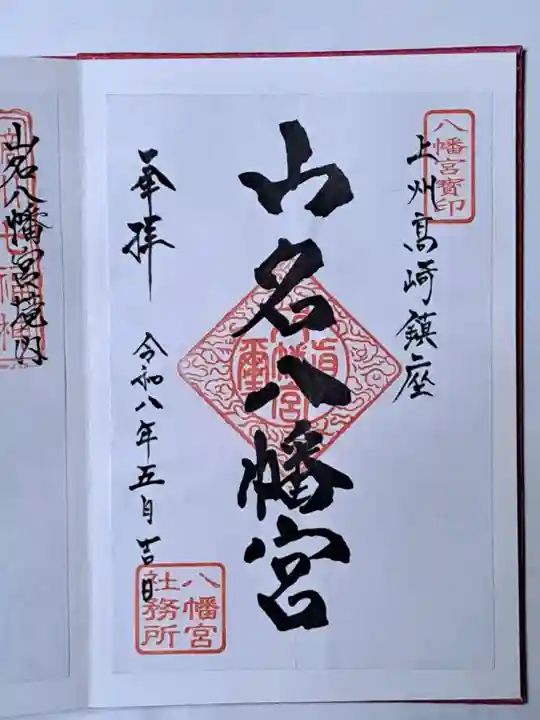 八幡宮寶印
上州高崎鎮座
山名八幡宮
奉拝
令和八年五月吉日
八幡宮
社務所
山名八幡宮境内